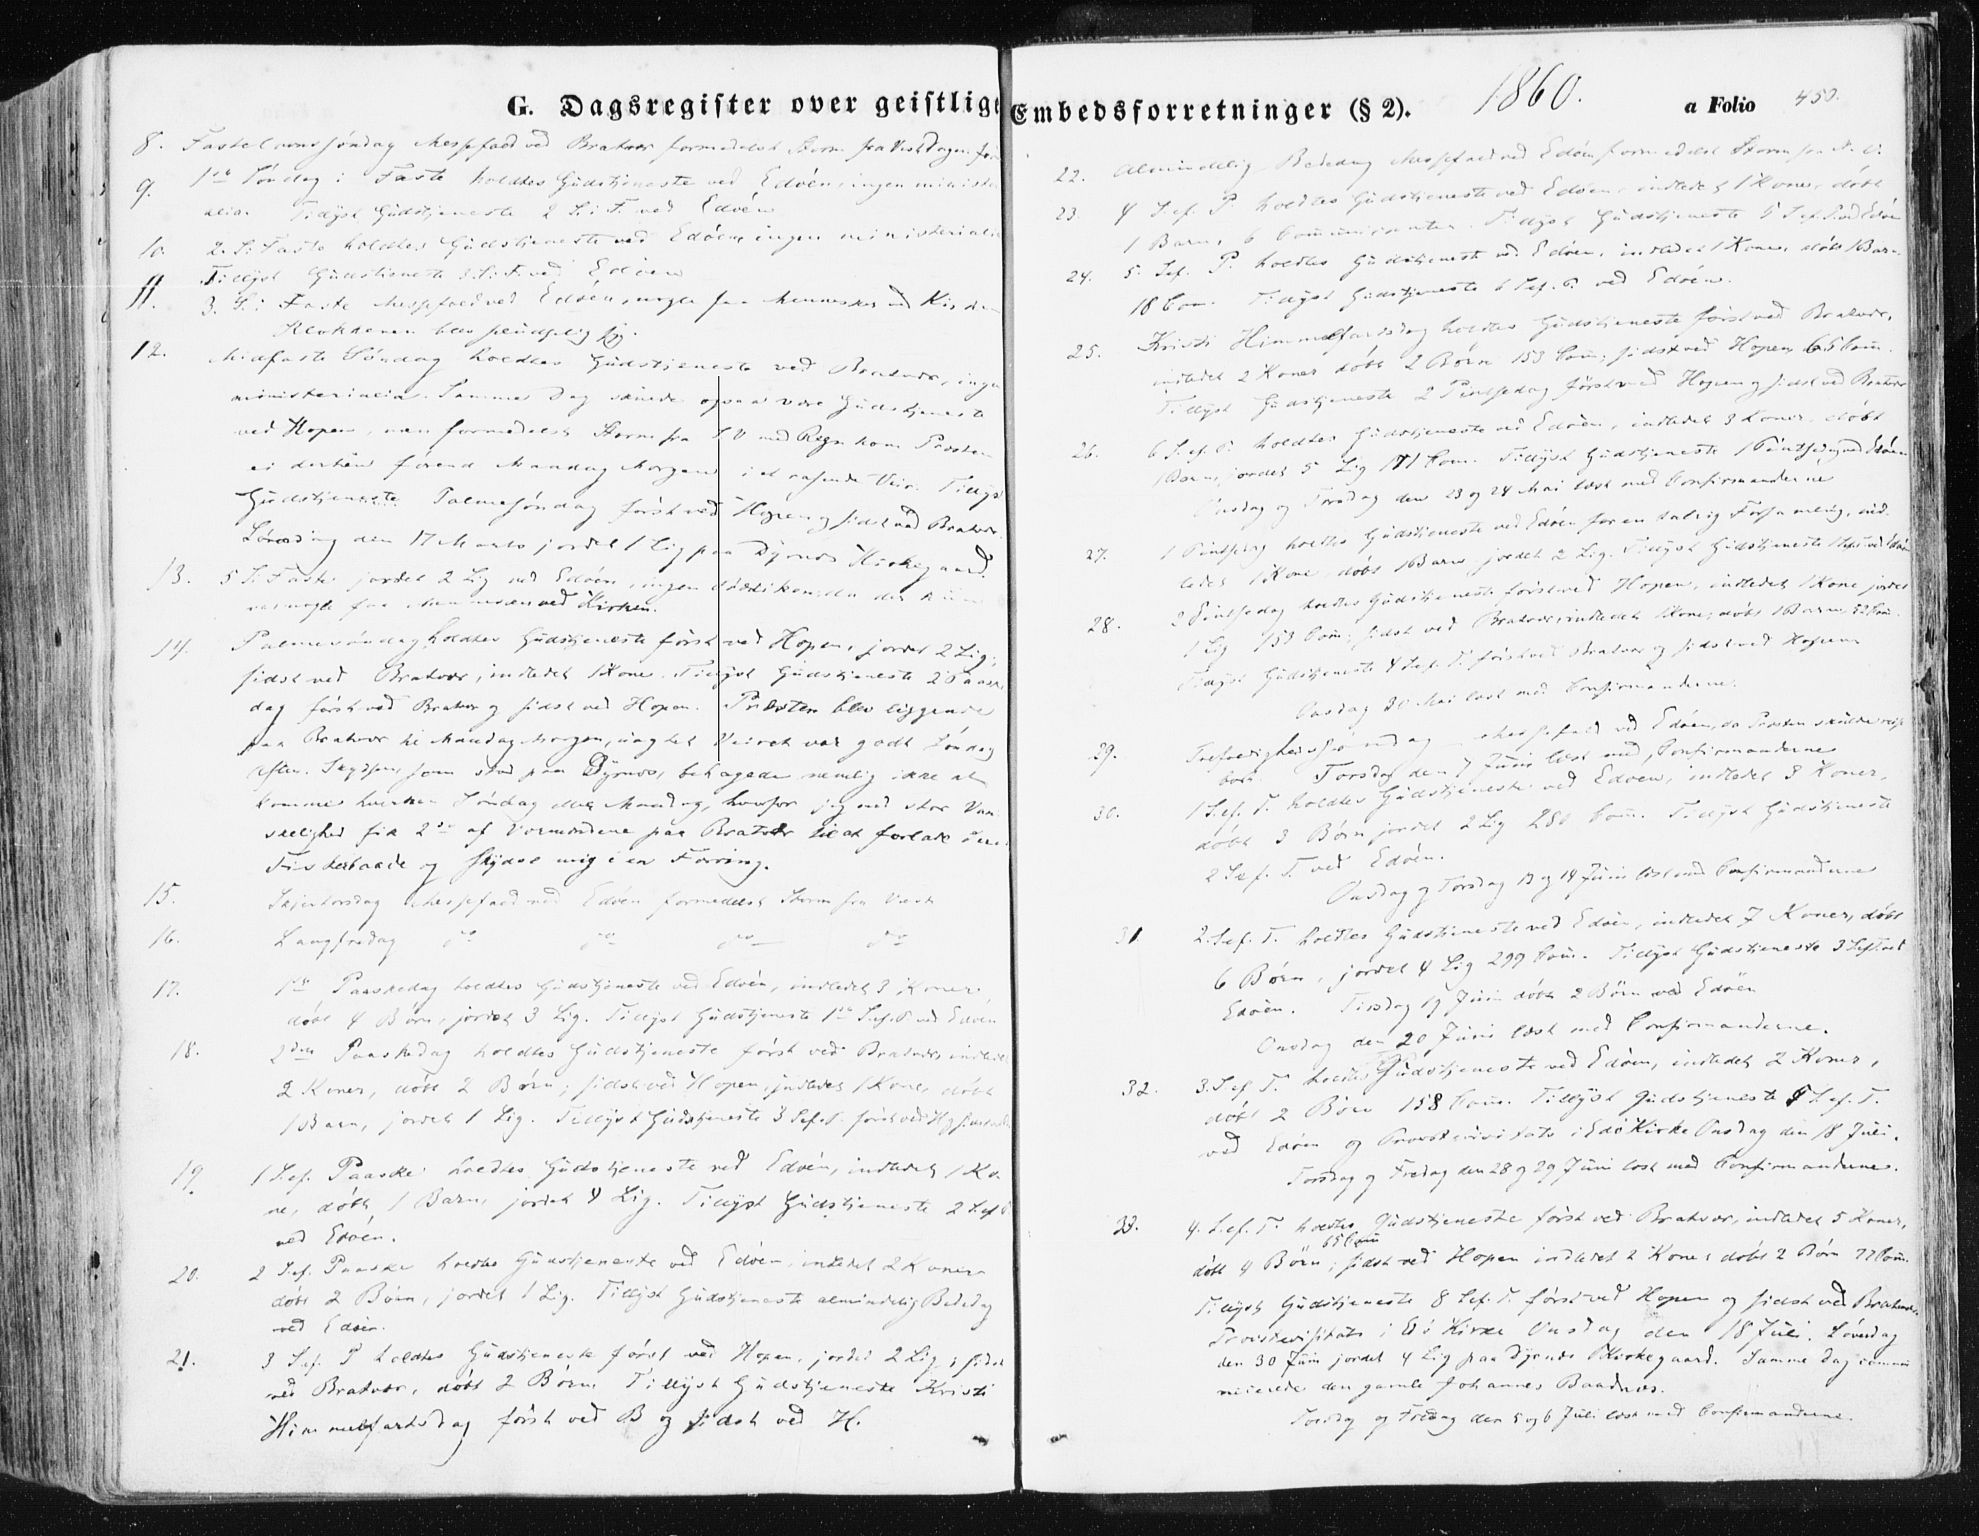 G. Dagsregister over geistlige Embedsforretninger (§ 2). 1860. a Folio 450.
8. Fastelavnssøndag Messefald ved Bratvær formedelst Storm fra Vest Dagen før
9. 1ste Søndag i Faste holdtes Gudstjeneste ved Edøen, ingen ministe-
rialia. Tillyst Gudstjeneste 2 S. i F. ved Edøen
10. 2. S. i Faste holdtes Gudstjeneste ved Edøen, ingen ministerialia
Tillyst Gudstjeneste 3. S. i F. ved Edøen
11. 3. S. i Faste Messefald ved Edøen, nogle faa Mennesker ved Kirken
Klokkeren blev pludselig syg.
12. Midfaste Søndag holdtes Gudstjeneste ved Bratvær, ingen
ministerialia. Samme Dag skulde ogsaa være Gudstjeneste
ved Hopen, men formedelst Storm fra S.V med Regn kom Præsten
ei derhen førend Mandag Morgen i et rasende Veir. Tillyst
Gudstjeneste Palmesøndag først ved Hopen og sidst ved Bratvær.
Løverdag den 17 Marts jordet 1 Lig paa Dyrnes Kirkegaard.
13. 5 S. i Faste jordet 2 Lig ved Edøen, ingen da der kun
var nogle faa Mennesker ved Kirken.
14. Palmesøndag holdtes Gudstjeneste først ved Hopen, jordet 2 Lig,
sidst ved Bratvær, indledet 1 Kone. Tillyst Gudstjeneste 2 Paaske-
dag først ved Bratvær og sidst ved Hopen. Præsten blev liggende
paa Bratvær til Mandag Morgen, uagtet Veiret var godt Søndag
Aften. Skydsen, som stod paa Dyrnes, behagede nemlig ikke at
komme hverken Søndag eller Mandag, hvorfor jeg med stor Van-
skelighed fik 2de af Vormændene paa Bratvær til at forlade deres
Fiskerbaade og skydse mig i en Færing.
15. Skjertorsdag Messefald ved Edøen formedelst Storm fra Vest
16. Langfredag do do do do
17. 1ste Paaskedag holdtes Gudstjeneste ved Edøen, indledet 3 Koner
døbt 4 Børn, jordet 3 Lig. Tillyst Gudstjeneste 1ste S. ef. P. ved Edøen
18. 2den Paaskedag holdtes Gudstjeneste først ved Bratvær, indledet
2 Koner, døbt 2 Børn; sidst ved Hopen, indledet 1 Kone, døbt
1 Barn, jordet 1 Lig. Tillyst Gudstjeneste 3 S. ef. P. først ved H og sidst ved B.
19. 1 S. ef. Paaske holdtes Gudstjeneste ved Edøen, indledet 1 Ko-
ne, døbt 1 Barn, jordet 4 Lig. Tillyst Gudstjeneste 2 S. ef. P.
ved Edøen.
20. 2 S. ef. Paaske holdtes Gudstjeneste ved Edøen, indledet 2 Koner
døbt 2 Børn, jordet 1 Lig. Tillyst Gudstjeneste almindelig Bededag
ved Edøen.
21. 3 S. ef. P holdtes Gudstjeneste først ved Hopen, jordet 2 Lig; sidst
ved Bratvær, døbt 2 Børn. Tillyst Gudstjeneste Kristi
Himmelfartsdag først ved B og sidst ved H.
22. Almindelig Bededag Messefald ved Edøen formedelst Storm fra N.V.
23. 4 S. ef. P. holdtes Gudstjeneste ved Edøen, indledet 1 Kone, døbt
1 Barn, 6 Communicanter. Tillyst Gudstjeneste 5 S. ef. P. ved Edøen
24. 5. S. ef. P. holdtes Gudstjeneste ved Edøen, indledet 1 Kone, døbt 1 Barn
18 Com. Tillyst Gudstjeneste 6 S. ef. P. ved Edøen.
25. Kristi Himmelfartsdag holdtes Gudstjeneste først ved Bratvær,
indledet 2 Koner døbt 2 Børn 153 Com; sidst ved Hopen, 66 Com.
Tillyst Gudstjeneste 2 Pintsedag først ved Hopen og sidst ved Bratvær
26. 6 S. ef. P. holdtes Gudstjeneste ved Edøen, indledet 3 Koner, døbt
1 Barn, jordet 5 Lig 171 Com. Tillyst Gudstjeneste 1 Pintsedag ved Edøen
Onsdag og Torsdag den 23 og 24 Mai læst med Confirmanderne
27. 1 Pintsedag holdtes Gudstjeneste ved Edøen for en talrig Forsamling, ind-
ledet 1 Kone, døbt 1 Barn, jordet 2 Lig. Tillyst Gudstjeneste 1 S. ef. T. ved Edøen
28. 2 Pintsedag holdtes Gudstjeneste først ved Hopen, indledet 1 Kone jordet
1 Lig 153 Com; sidst ved Bratvær, indledet 1 Kone, døbt 1 Barn, 52 Com.
Tillyst Gudstjeneste 4 S. ef. T. først ved Bratvær og sidst ved Hopen
Onsdag 30 Mai læst med Confirmanderne.
29. Trefoldighedssøndag Messefald ved Edøen, da Præsten skulde reise
bort. Torsdag den 7 Juni læst med Confirmanderne
30. 1 S. ef. T. holdtes Gudstjeneste ved Edøen, indledet 3 Koner,
døbt 3 Børn jordet 2 Lig 280 Com. Tillyst Gudstjeneste
2 S. ef. T. ved Edøen.
Onsdag og Torsdag 13 og 14 Juni læst med Confirmanderne
31 2. S. ef. T. holdtes Gudstjeneste ved Edøen, indledet 7 Koner, døbt
6 Børn, jordet 4 Lig 299 Com. Tillyst Gudstjeneste 3 S. ef. T. ved
Edøen. Tirsdag 19 Juni døbt 2 Børn ved Edøen
Onsdag den 20 Juni læst med Confirmanderne.
32. 3. S. ef. T. holdtes Gudstjeneste ved Edøen, indledet 2 Koner,
døbt 2 Børn 158 Com. Tillyst Gudstjeneste 5 S. ef. T.
ved Edøen og Provstevisitats i Edø Kirke Onsdag den 18 Juli.
Torsdag og Fredag den 28 og 29 Juni læst med Confirmanderne.
33. 4. S. ef. T. holdtes Gudstjeneste først ved Bratvær, indledet 5 Koner,
65 Com
døbt 4 Børn; sidst ved Hopen indledet 2 Koner døbt 2 Børn 77 Com.
Tillyst Gudstjeneste 8 S. ef. T. først ved Hopen og sidst ved Bratvær.
Provstevisitats i Edø Kirke Onsdag den 18 Juli. Løverdag
den 30 Juni jordet 4 Lig paa Dyrnes Kirkegaard. Samme Dag commu-
nicerede den gamle Johannes Baadnes.
Torsdag og Fredag den 5 og 6 Juli læst med Confirmanderne.